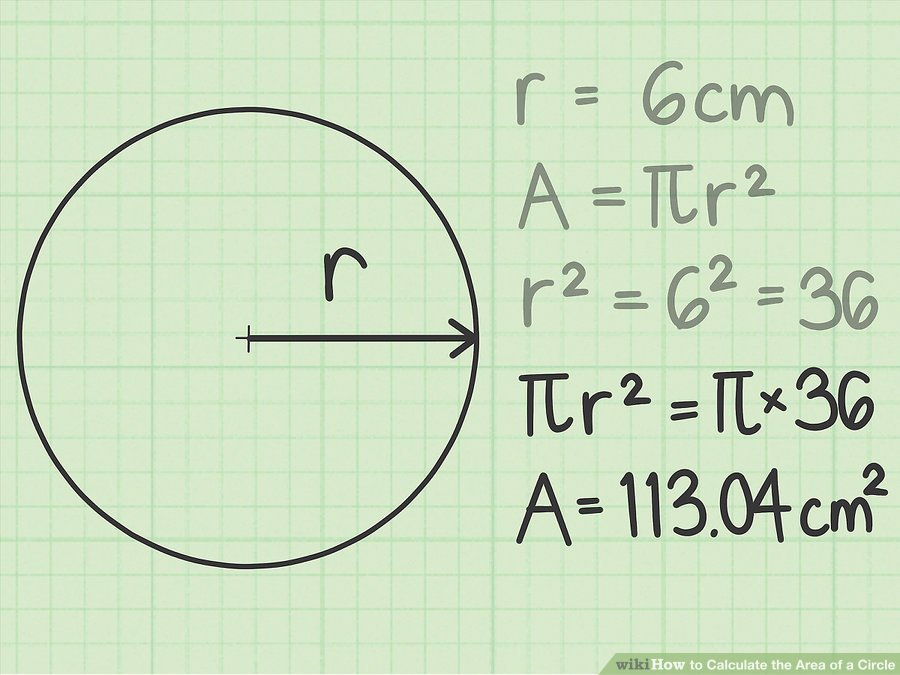 r = 6cm
A = πr²
r
r² = 6² = 36
πr² = π×36
A = 113.04 cm²
wikiHow to Calculate the Area of a Circle